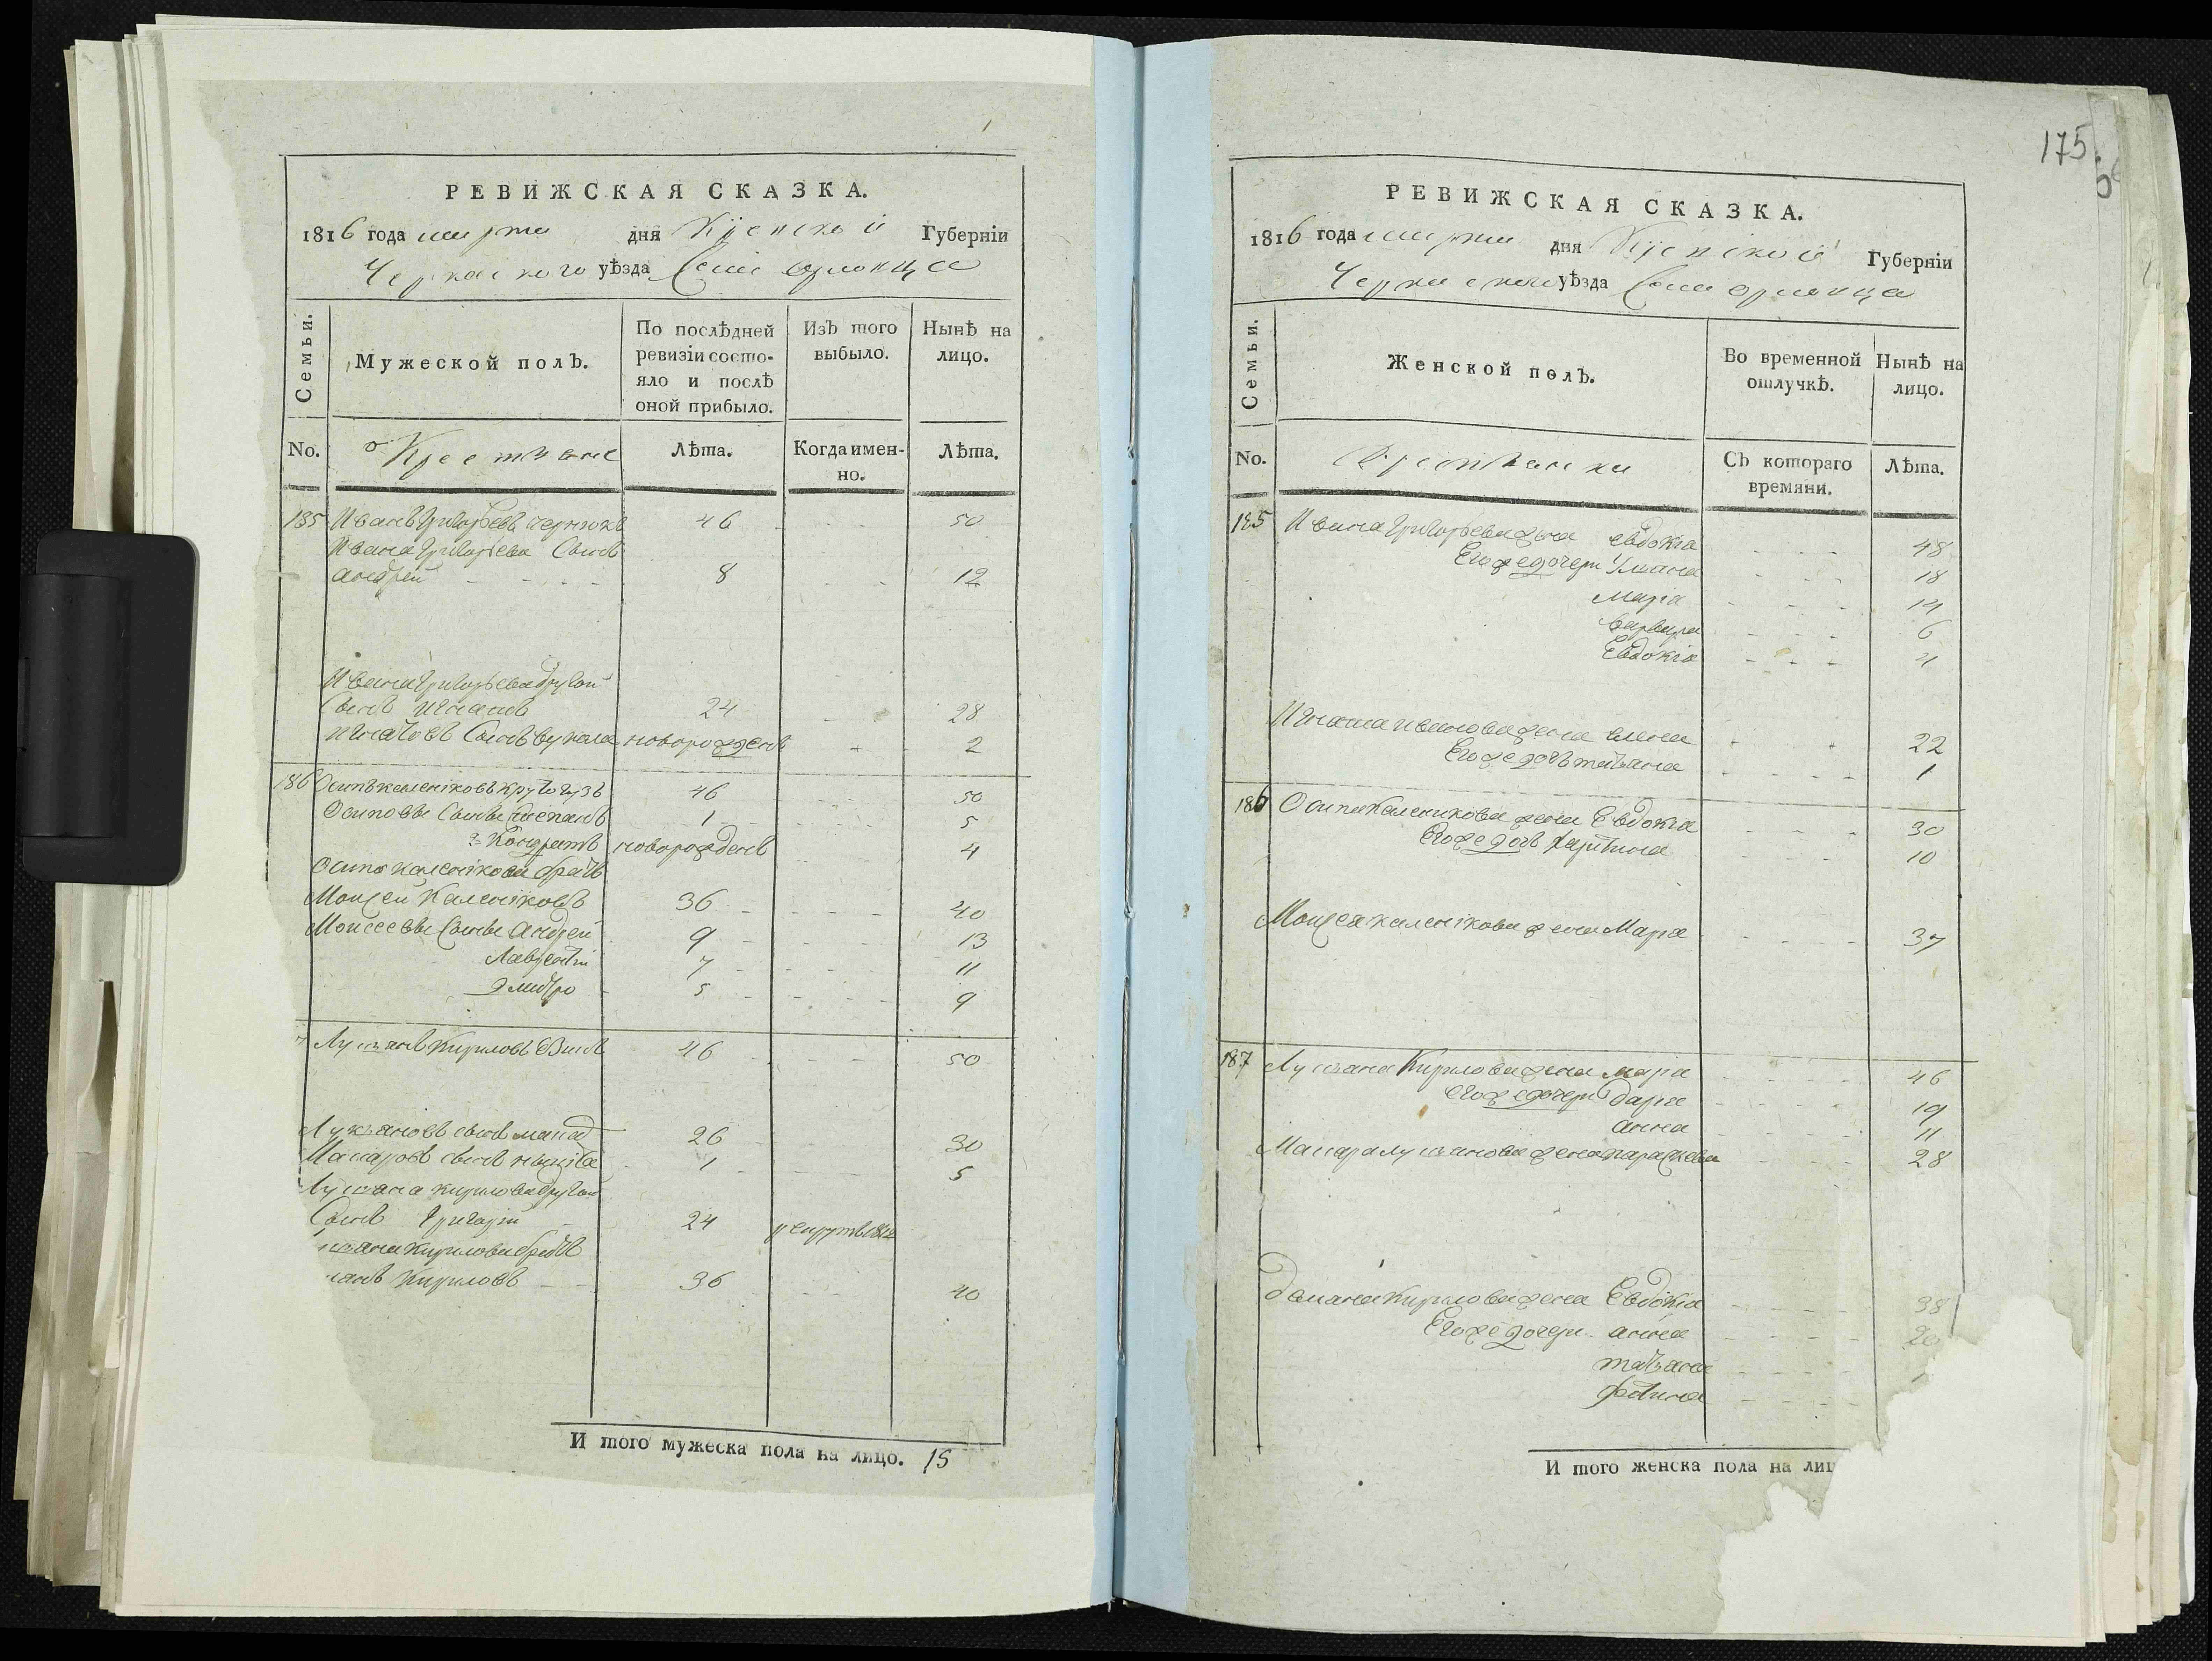 РЕВИЖСКАЯ СКАЗКА.
1816 года марта дня Кіевской Губерніи
Черкаского уѣзда Села орловца
Семьи.
Мужеской полъ.
По послѣдней ревизіи состояло и послѣ оной прибыло.
Изъ того выбыло.
Нынѣ на лицо.
No.
Крестьяне
Лѣта.
Когда именно.
Лѣта.
185 Иванъ Григорьевъ 46 50
Ивана Григорьева Сынъ
андрей 8 12
Ивана Григорьева другой
Сынъ игнатъ 24 28
игнатовъ Сынъ вукола новорожденъ 2
186 Осипъ калениковъ 46 50
Осиповы Сыны степанъ 1 5
2 Кондратъ новорожденъ 4
Осипа каленікова братъ
Моисей Каленіковъ 36 40
Моисеевы Сыны андрей 9 13
Лаврентій 7 11
дмитро 5 9
Лукьянъ Кириловъ 46 50
Лукьяновъ сынъ макаръ 26 30
Макаровъ сынъ 1 5
Лукьяна кирилова другой
Сынъ Григорій 24 1812
кьяна Кирилова братъ
Кириловъ 36 40
И того мужеска пола на лицо. 15
175
РЕВИЖСКАЯ СКАЗКА.
1816 года марта дня Кіевской Губерніи
Черкаского уѣзда Села орловца
Семьи.
Женской полъ.
Во временной отлучкѣ.
Нынѣ на лицо.
No.
Крестьянки
Съ котораго времяни.
Лѣта.
185 Ивана Григорьева жена евдокіа 48
Его же дочери Ульяна 18
Маріа 14
варвара 6
Евдокіа 4
Игната иванова жена елена 22
Его же дочь татьяна 1
186 Осипа Каленикова жена Евдокіа 30
Его же дочь харитина 10
Моисея каленікова жена Маріа 37
187 Лукьяна Кирилова жена маріа 46
его же дочери дарія 19
анна 11
Макара лукьянова жена параскева 28
Кирилова жена Евдокіа 38
Его же дочери анна 20
татьяна
фотина
И того женска пола на лиц